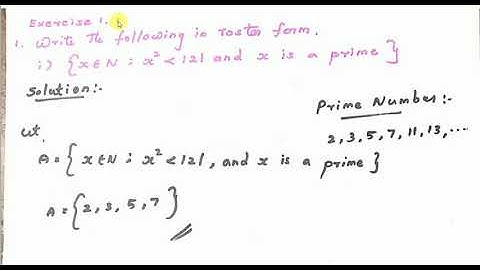 Exercise 1.
1. Write the following in roster form.
i) {x∈N : x² < 121 and x is a prime}
Solution:-
Prime Number:-
2, 3, 5, 7, 11, 13, ...
Let
A = {x∈N : x² < 121, and x is a prime}
A = {2, 3, 5, 7}